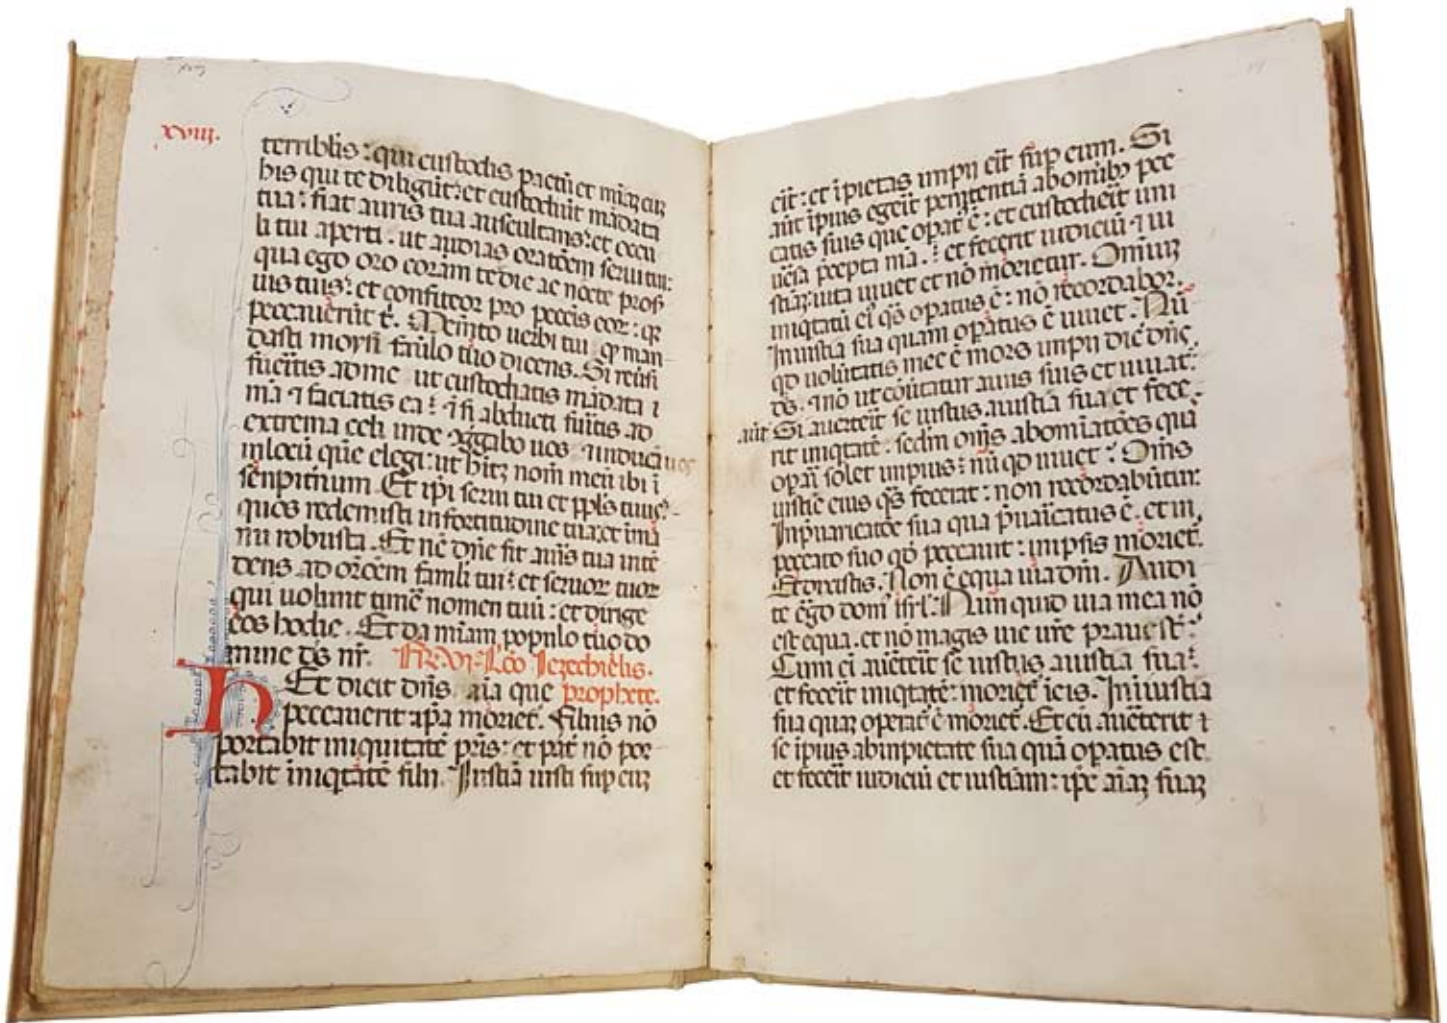 xviij.
terribilis : qui custodis pactū et mīaȝ cū
his qui te diligūt : et custodiūt mādata
tua : fiat auris tua auscultans : et ocu
li tui aperti . ut audias oratōem serui tui :
qua ego oro coram te die ac nocte pro
uis tuis : et confiteor pro pccīs
peccauerūt t̄. Memto uerbi tui qͥ man
dasti moysi faūlo tuo dicens . Si reūsi
fueītis ad me ut custodiatis mādata
mā ⁊ faciatis ea : ⁊ si abducti fuītis ad
extrema celi inde 9ggabo uos ⁊ inducā uos
in locū quē elegi : ut hītȝ nom̄ meū ibi ī
senpitnum . Et ip̄i serui tui et ppl̄s tuus :
quos redemisti in fortitudine tua et ī mā
nu robusta . Et nē dn̄e sit auīs tua intē
dens ad orōem famli tui : et seruoꝝ tuoꝝ
qui uolunt timē nomen tuū : et dirige
eos hodie . Et da mīam popnlo tuo do
mine ds nr̄. Fr. vi . Lc̄o Iezechielis .
Et dicit dn̄s . aīa que prophete .
H peccauerit ip̄a moriet̄. Filius nō
portabit iniquitatē prīs : et pāt nō por
tabit iniqtatē filij . Iustīa iusti sup eū
eīt : et īpietas impij eīt sup eum . Si
aūt īpius egeīt penitentiā ab omībꝰ pec
catis suis que opat̄ ē : et custodieīt uni
uēsa pcepta mā . et fecerit iudiciū ⁊ iu
stīaȝ : uita uiuet et nō morietur . Omniuȝ
iniqtatū eī qͣs opatus ē : nō recordabor :
In iustīa sua quam opatus ē uiuet . Nū
qd uolūtatis mee ē mors impij diē dn̄s
ds . ⁊ nō ut cōuītatur a uiis suis et uiuat :
.aūt Si aueīteīt se iustus a iustīa sua et fece
rit iniqtatē . sedm̄ om̄s abomīatōes quā
opaīi solet impius : nū qd uiuet : Om̄s
iustīe eius qͣs feceīat : non recordabūtur :
In pͥuaricatōe sua qua pͥuaīcatus ē . et in
peccato suo qd peccauit : in ipsis moriet̄.
Et dixistis . Non ē equa uia dnī . Audi
te ēgo dom̄ isrl̄ : Nun quid uia mea nō
est equa . et nō magis uie ur̄e praue st̄ :
Cum eī aūteīt se iustus a iustīa sua :
et feceīt iniqtatē : moriet̄ ī eis . In iniustīa
sua quaȝ operat̄ ē moriet̄. Et cū auēterit
se īpius ab inpietate sua quā opatus est
et feceīt iudiciū et iustīam : ip̄e aīaȝ suaȝ